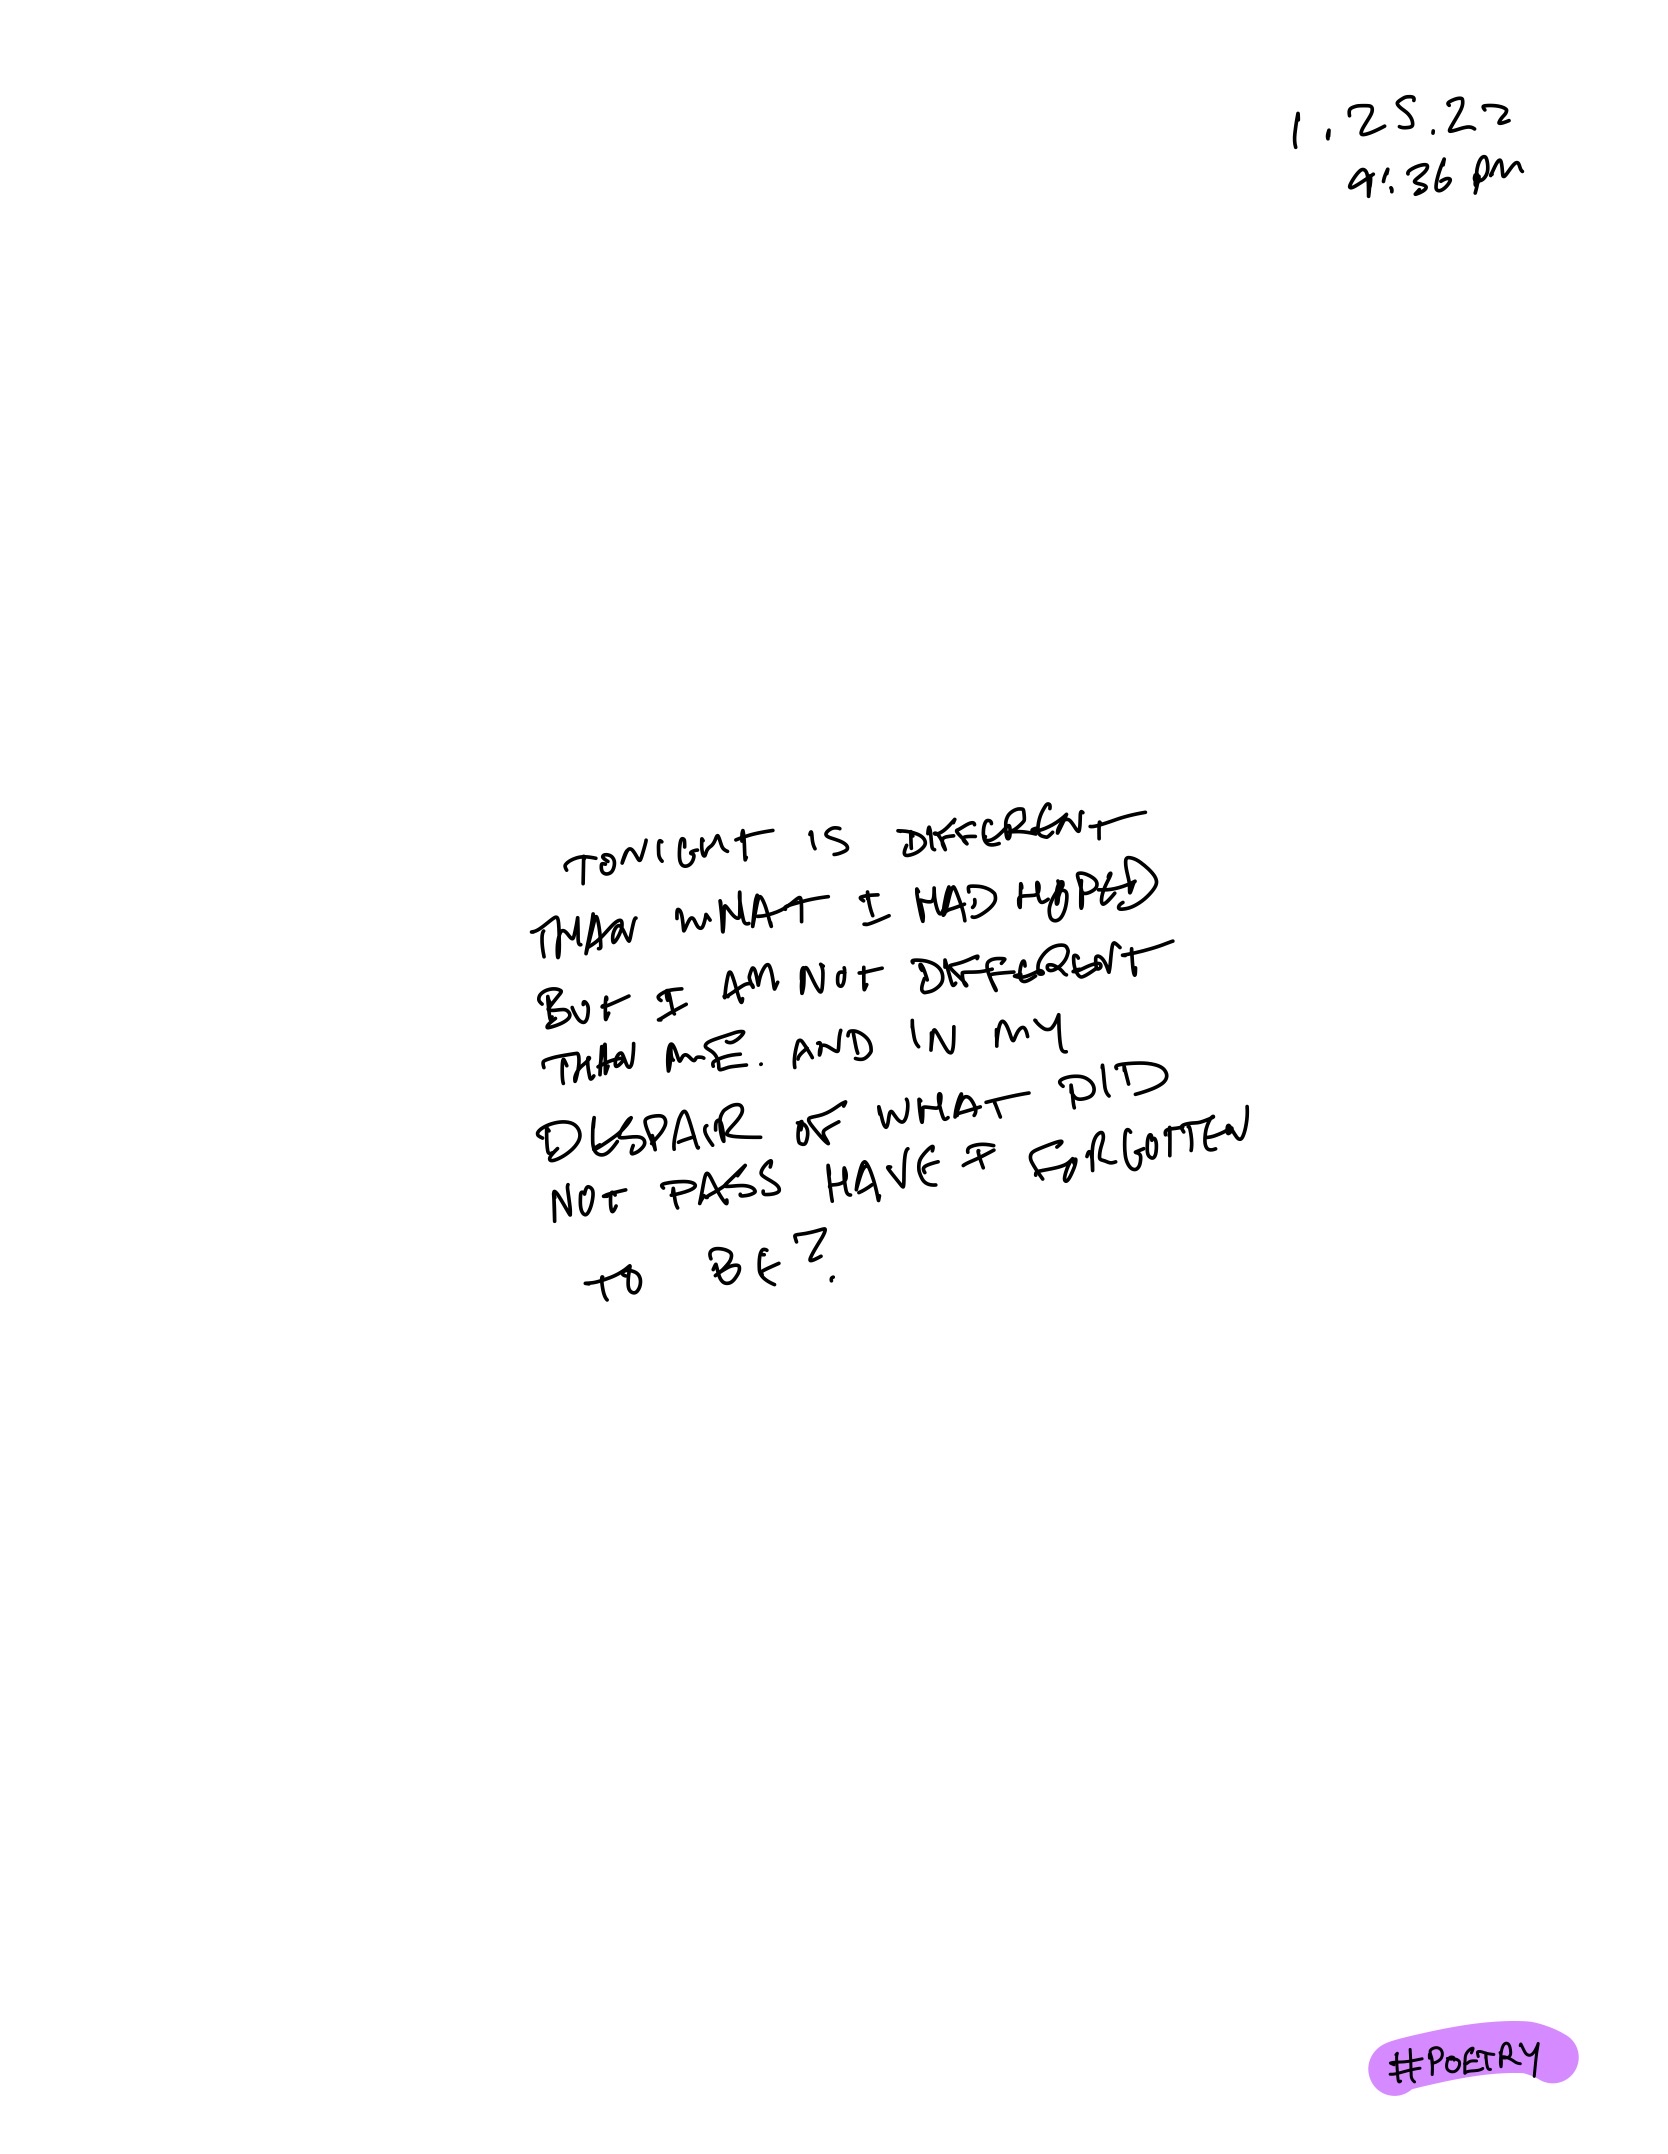 1.25.22
9:36 pm
TONIGHT IS DIFFERENT
THAN WHAT I HAD HOPED
BUT I AM NOT DIFFERENT
THAN ME. AND IN MY
DESPAIR OF WHAT DID
NOT PASS HAVE I FORGOTTEN
TO BE?
#POETRY